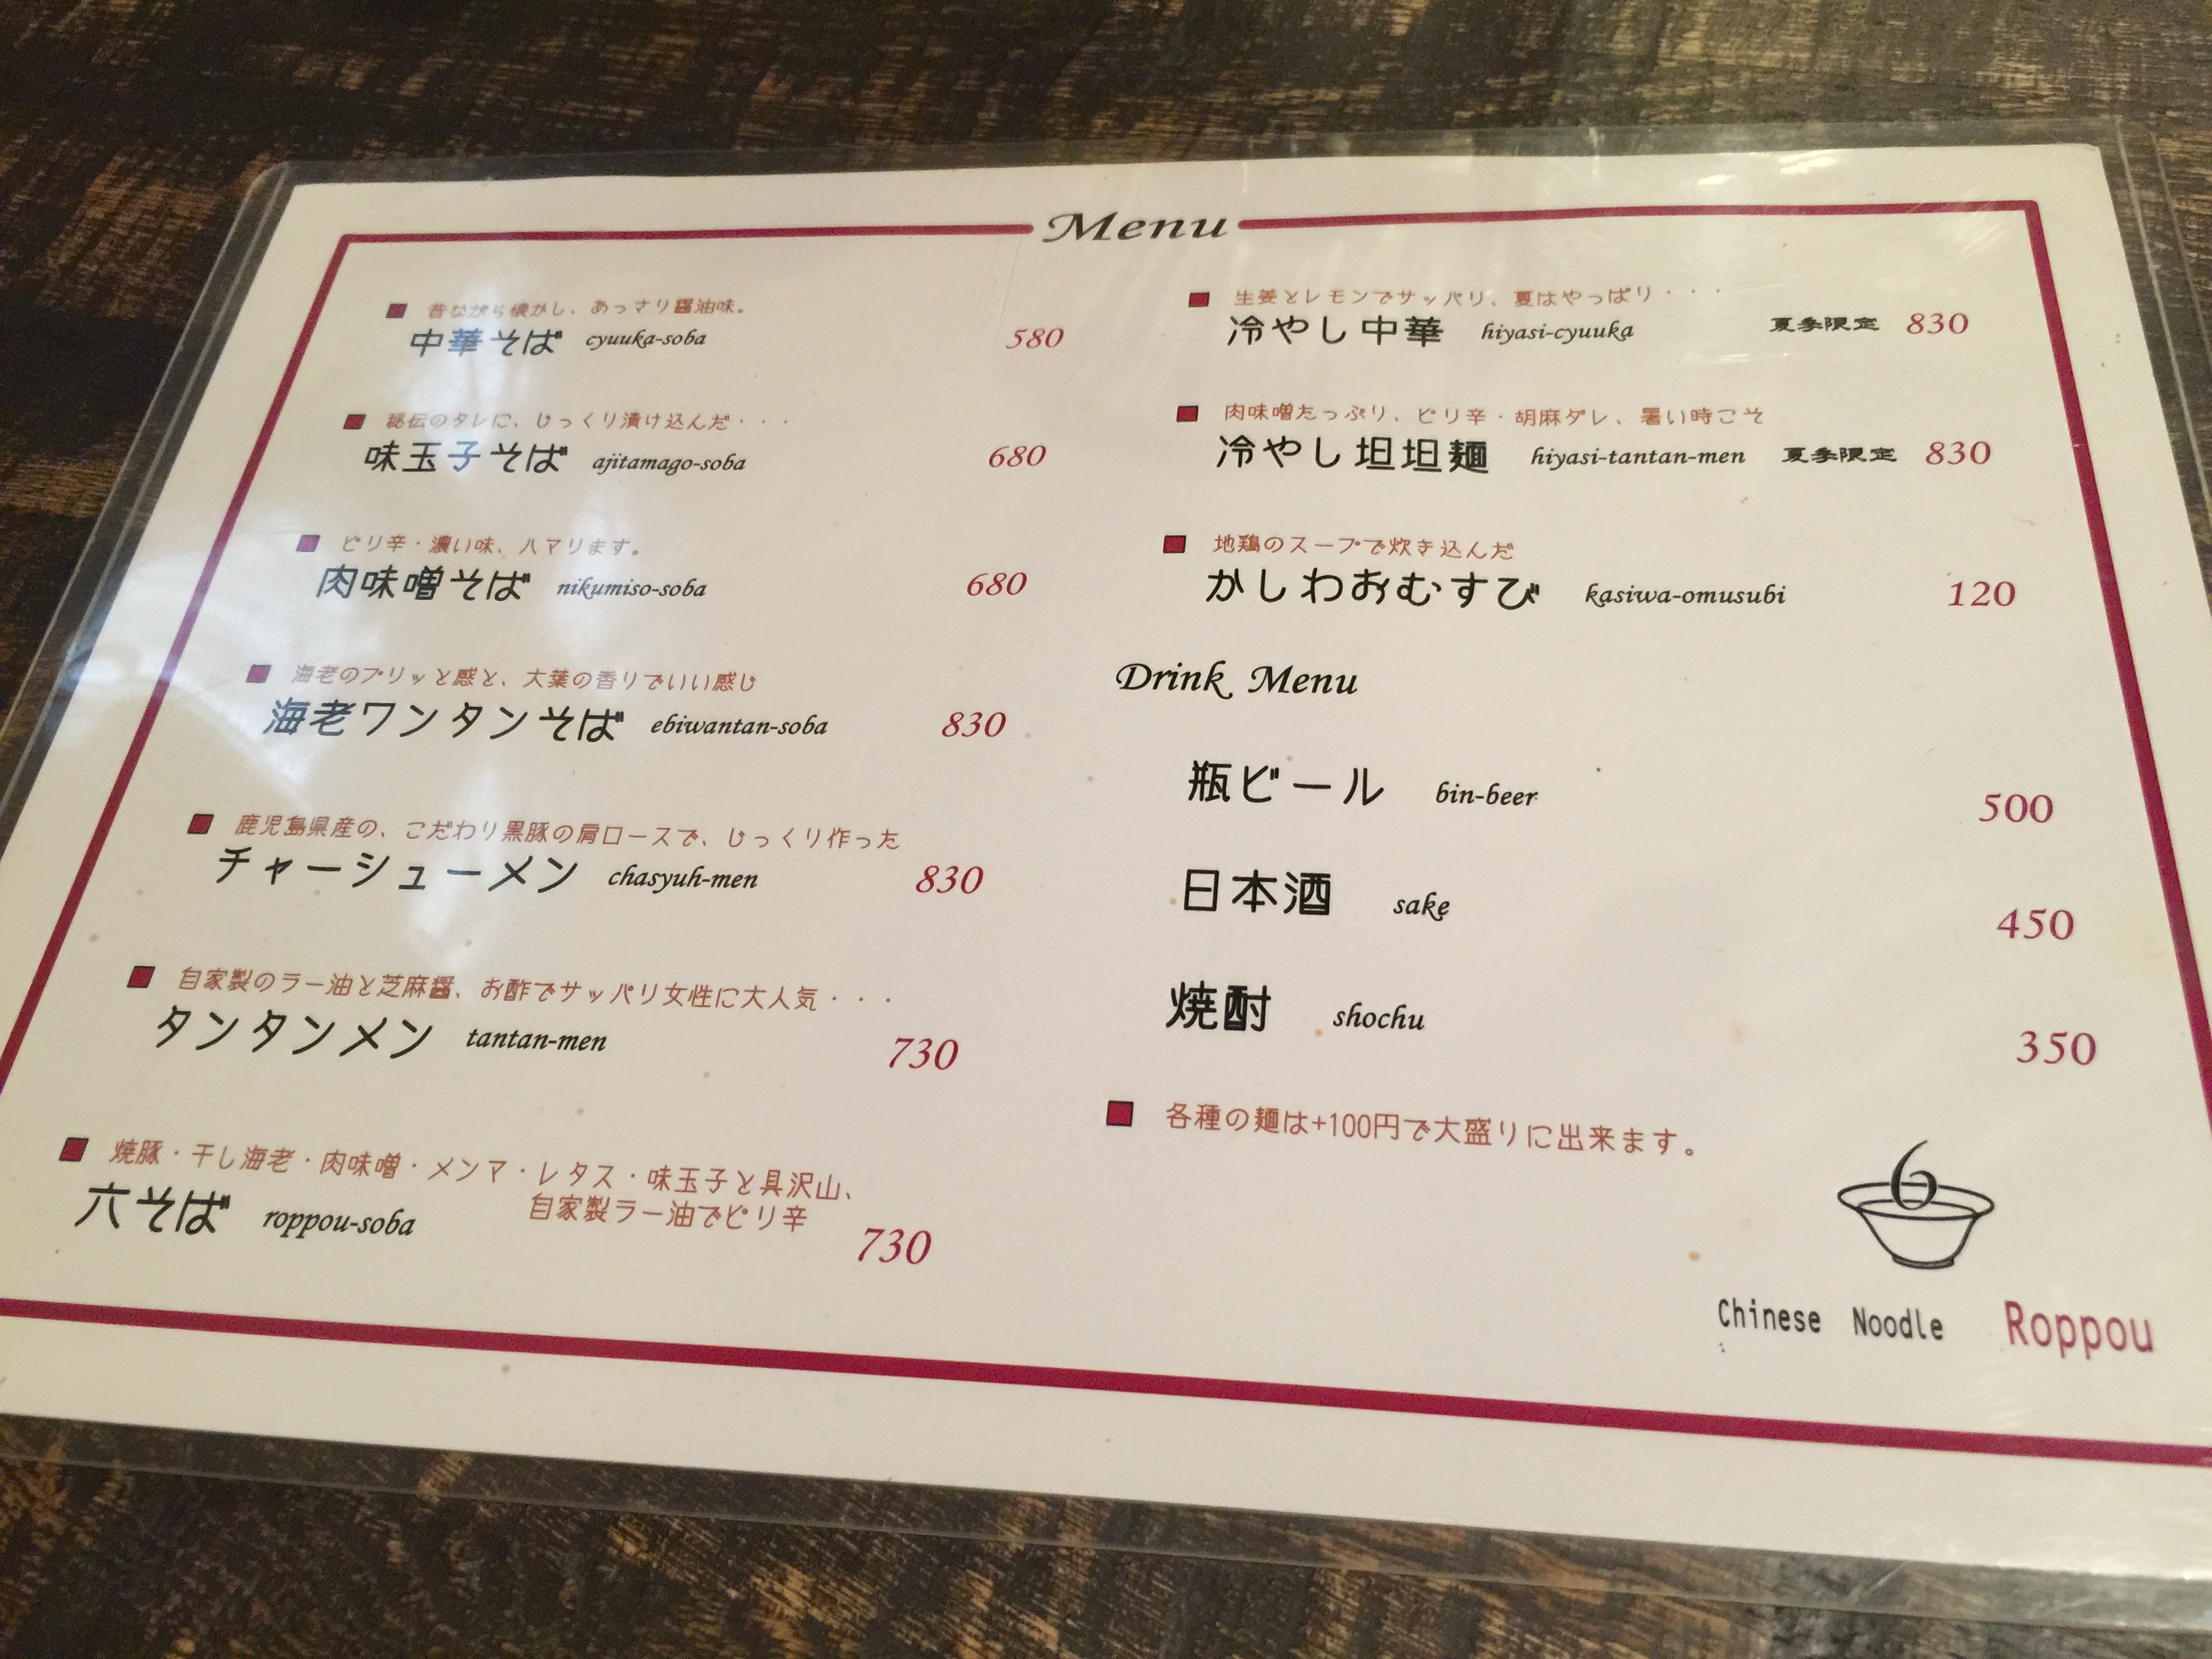 Menu
昔ながら懐かし、あっさり醤油味。
中華そば cyuuka-soba 580
秘伝のタレに、じっくり漬け込んだ・・・
味玉子そば ajitamago-soba 680
ピリ辛・濃い味、ハマリます。
肉味噌そば nikumiso-soba 680
海老のプリッと感と、大葉の香りでいい感じ
海老ワンタンそば ebiwantan-soba 830
鹿児島県産の、こだわり黒豚の肩ロースで、じっくり作った
チャーシューメン chasyuh-men 830
自家製のラー油と芝麻醤、お酢でサッパリ女性に大人気・・・
タンタンメン tantan-men 730
焼豚・干し海老・肉味噌・メンマ・レタス・味玉子と具沢山、
自家製ラー油でピリ辛
六そば roppou-soba 730
生姜とレモンでサッパリ、夏はやっぱり・・・
冷やし中華 hiyasi-cyuuka 夏季限定 830
肉味噌たっぷり、ピリ辛・胡麻ダレ、暑い時こそ
冷やし坦坦麺 hiyasi-tantan-men 夏季限定 830
地鶏のスープで炊き込んだ
かしわおむすび kasiwa-omusubi 120
Drink Menu
瓶ビール bin-beer 500
日本酒 sake 450
焼酎 shochu 350
各種の麺は+100円で大盛りに出来ます。
6
Chinese Noodle Roppou